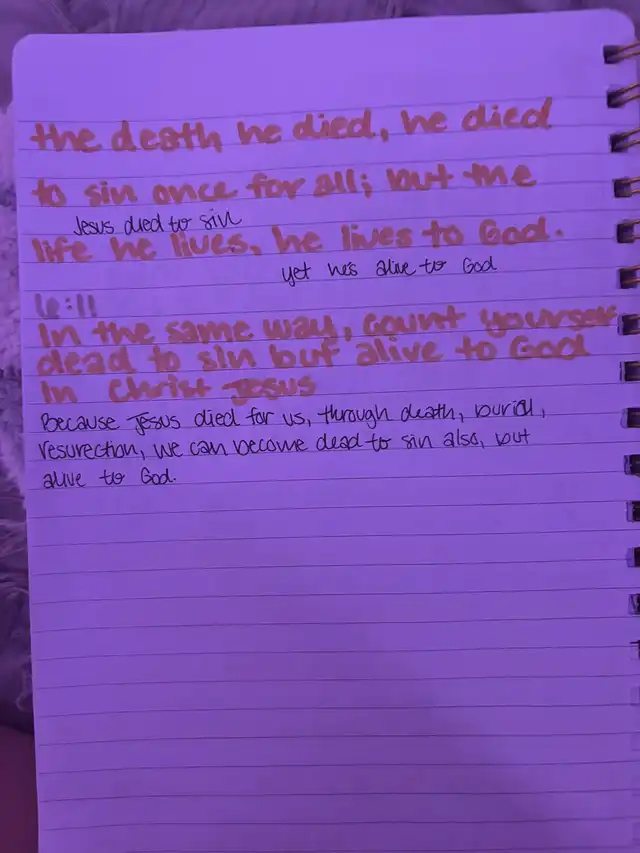 the death he died, he died
to sin once for all; but the
Jesus died to sin
life he lives, he lives to God.
yet hes alive to God
6:11
In the same way, count yourself
dead to sin but alive to God
in Christ Jesus
Because Jesus died for us, through death, burial,
resurection, we can become dead to sin also, but
alive to God.